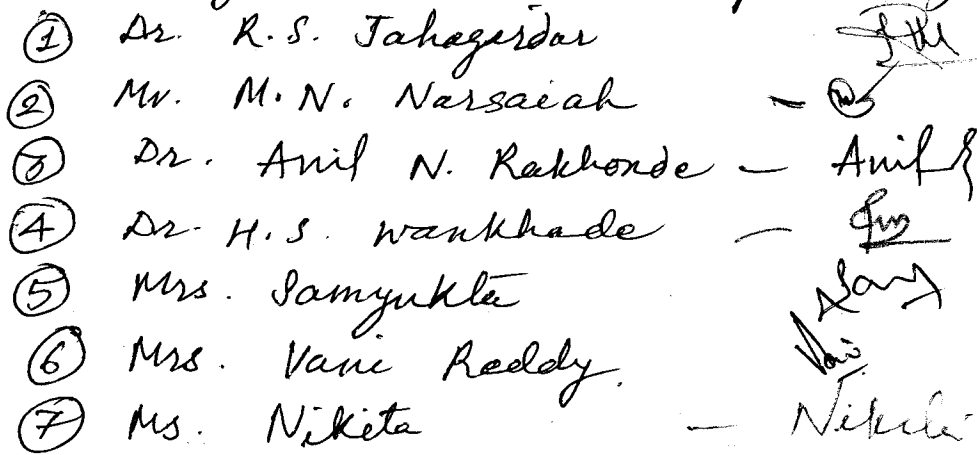 ① Dr. R.S. Jahagirdar
② Mr. M.N. Narsaiah -
③ Dr. Anil N. Rakhonde - Anil
④ Dr. H.S. Wankhade -
⑤ Mrs. Samyukta Samy
⑥ Mrs. Vani Reddy. Vani
⑦ Ms. Nikita - Nikita